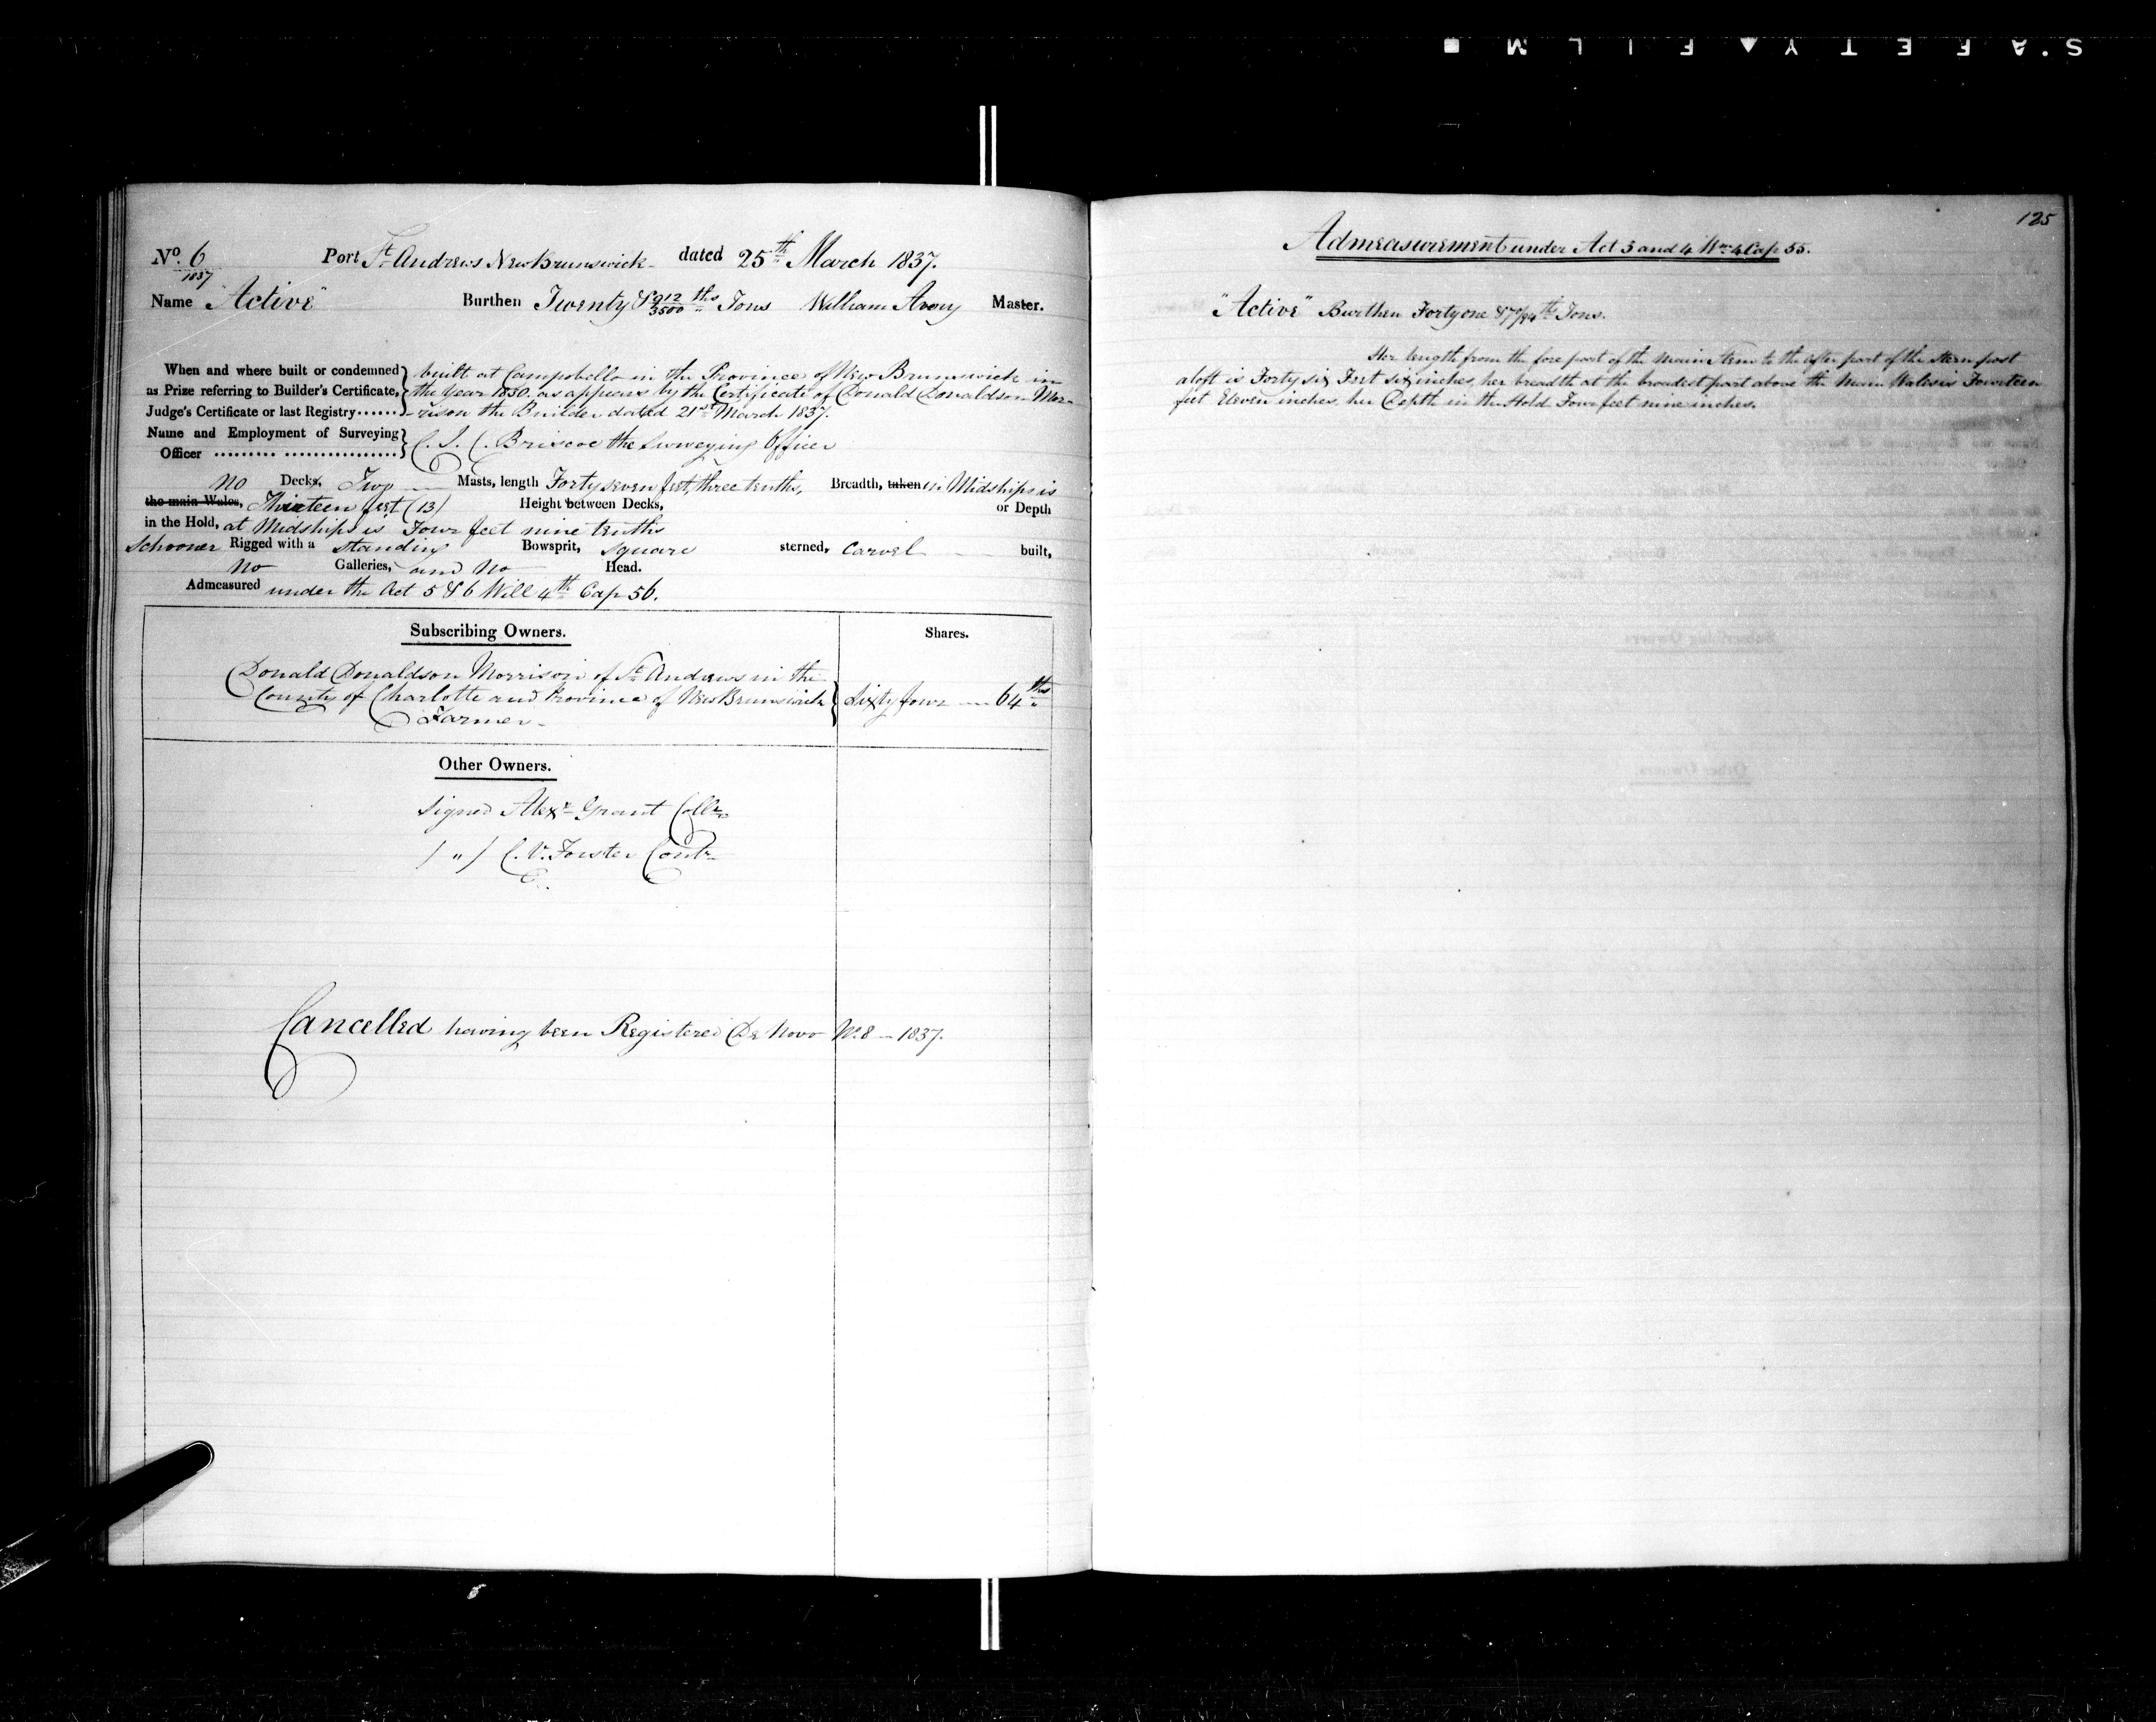 S.AFETY▲FILM■
Nº. 6 Port St. Andrews New Brunswick dated 25th March 1837.
1837
Name "Active" Burthen Twenty & 912/3500 ths Tons William Avery Master.
When and where built or condemned as Prize referring to Builder's Certificate, Judge's Certificate or last Registry......} built at Campobello in the Province of New Brunswick in
the Year 1830. as appears by the Certificate of Donald Donaldson Mor-
-rison the Builder dated 21st March 1837.
Name and Employment of Surveying Officer ......... ................} C. J. C. Briscoe the Surveying Officer
No Decks, Two Masts, length Forty seven feet, three tenths, Breadth, taken in Midships is
the main Wales, Thirteen feet (13) Height between Decks, or Depth
in the Hold, at Midships is Four feet nine tenths
Schooner Rigged with a standing Bowsprit, square sterned, Carvel built,
No Galleries, and No Head.
Admeasured under the Act 5 & 6 Will 4th Cap 56.
Subscribing Owners. Shares.
Donald Donaldson Morrison of St. Andrews in the
County of Charlotte and Province of New Brunswick } Sixty four 64ths
Farmer
Other Owners.
Signed Alexr Grant Collr
/ " / C. V. Forster Contr
Cancelled having been Registered De Novo No. 8 - 1837.
125
Admeasurement under Act 3 and 4 Wm. 4 Cap 55.
"Active" Burthen Forty one & 70/94th Tons.
Her length from the fore part of the Main Stem to the after part of the Stern post
aloft is Forty six Feet six inches, her breadth at the broadest part above the Main Wales is Fourteen
feet Eleven inches, her Depth in the Hold Four feet nine inches.